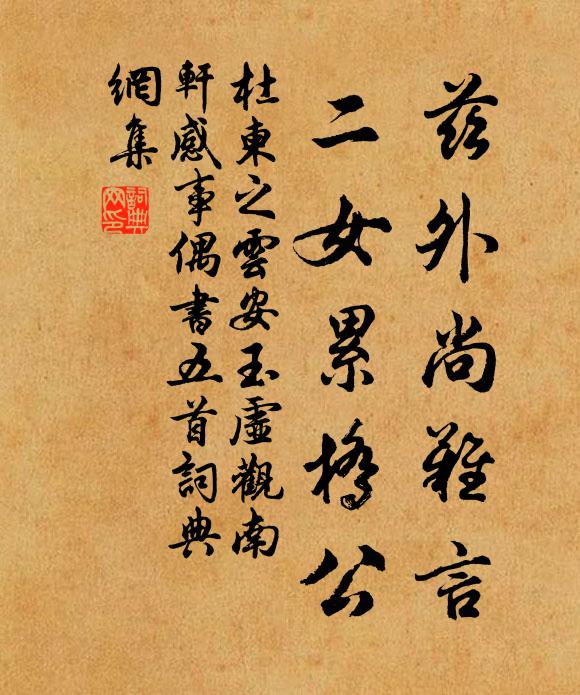 茲外尚難言
二女累橋公
杜東之雲安玉虛觀南
軒感事偶書五首詞典
網集
詞典
网印